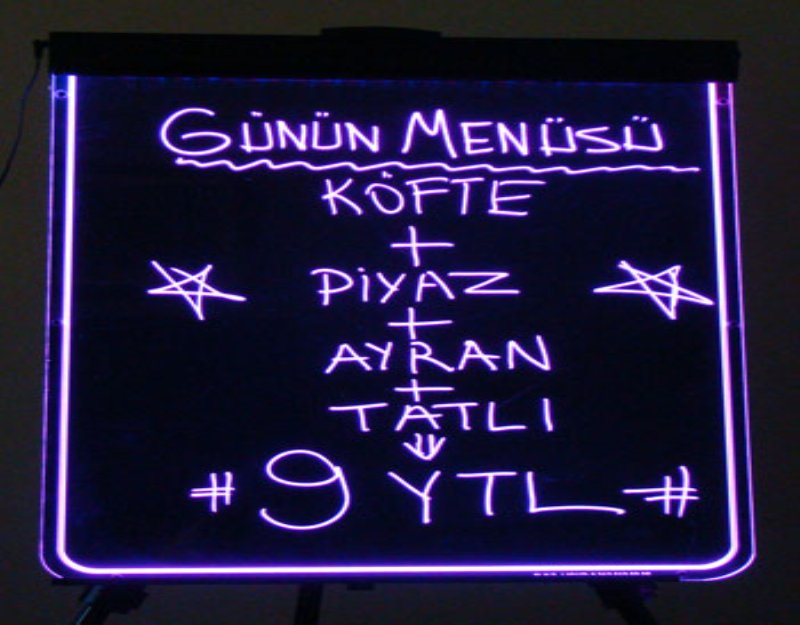 GÜNÜN MENÜSÜ
KÖFTE
+
PİYAZ
+
AYRAN
+
TATLI
⇓
# 9 YTL #